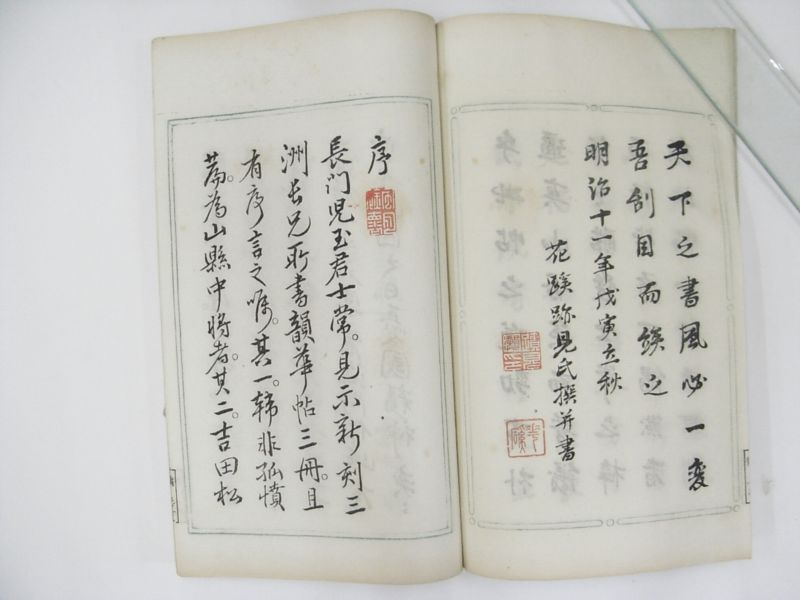 天下之書風必一変
吾刮目而竢之
明治十一年戊寅立秋
花蹊跡見氏撰并書
序
長门児玉君士常。見示新刻三
洲長兄所書韻華帖三冊。且
有序言之嘱。其一。韩非孤憤
篇。為山縣中将者。其二。吉田松